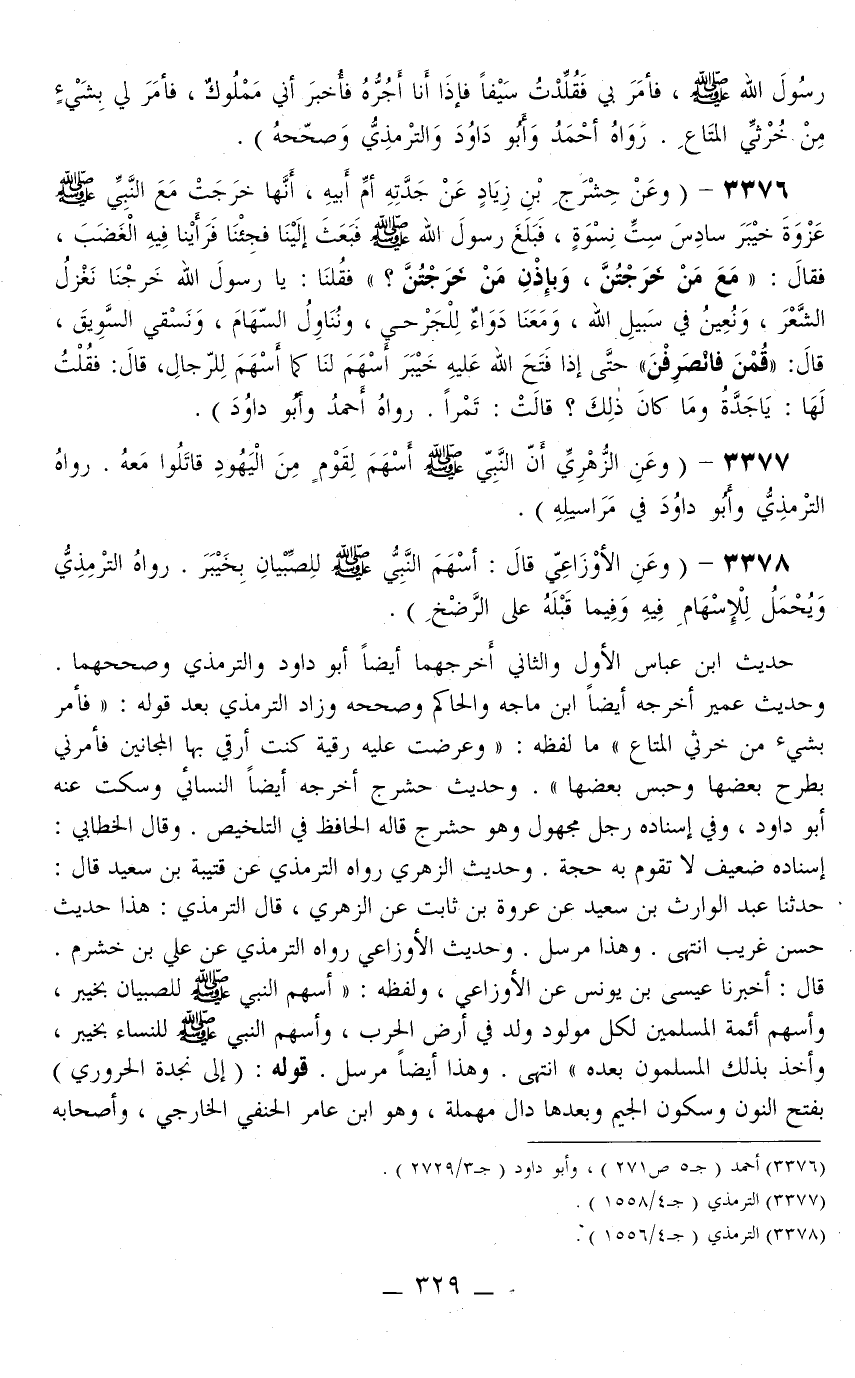 رسُولَ الله ﷺ ، فأمَر بي فَقُلِّدْتُ سَيْفاً فإذَا أَنا أَجُرُّهُ فأُخبرَ أني مَمْلُوكٌ ، فأمَرَ لي بِشَيْءٍ
مِنْ خُرْثيِّ المَتَاعِ . رَوَاهُ أحْمَدُ وَأَبُو دَاوُدَ وَالترْمذِيُّ وَصحّحهُ ) .
٣٣٧٦ – ( وعَنْ حِشْرَجِ بْنِ زِيَادٍ عَنْ جَدَّتِهِ أمِّ أَبيهِ ، أنَّها خرَجَتْ مَعَ النَّبيِّ ﷺ
غَزْوَةَ خيْبَرَ سادِسَ سِتِّ نِسْوَةٍ ، فَبَلَغَ رسولَ الله ﷺ فَبَعَثَ إلَيْنَا فجِئْنَا فَرَأَيْنا فيهِ الْغَضبَ ،
فقالَ : « مَعَ مَنْ خَرَجْتُنَّ ، وَبإِذْنِ مَنْ خَرَجْتُنَّ ؟ » فقُلنَا : يا رسولَ الله خَرجْنَا نَغْزلُ
الشَّعْرَ ، وَنُعِينُ في سَبيلِ الله ، وَمَعَنَا دَوَاءٌ لِلْجَرْحى ، ونُنَاوِلُ السّهَامَ ، وَنَسْقي السَّويقَ ،
قالَ: «قُمْنَ فانْصَرِفْنَ» حتَّى إذا فتَحَ الله عَليهِ خَيْبَرَ أسْهَمَ لنَا كما أسْهَمَ لِلرّجالِ، قالَ: فقُلْتُ
لَهَا : يَاجَدَّةُ ومَا كانَ ذٰلِكَ ؟ قالَتْ : تَمْراً . رواهُ أَحمدُ وأَبُو داوُدَ ) .
٣٣٧٧ – ( وعَنِ الزُّهْرِيِّ أَنّ النَّبيّ ﷺ أَسْهَمَ لِقَوْمٍ مِنَ الْيَهُودِ قاتَلُوا مَعهُ . رواهُ
الترْمذِيُّ وأَبُو داوُدَ في مَرَاسيلِهِ ) .
٣٣٧٨ – ( وعَنِ الأوْزَاعِيّ قالَ : أسْهَمَ النَّبيُّ ﷺ للصِّبْيانِ بِخَيْبَرَ . رواهُ الترْمِذِيُّ
وَيُحْمَلُ لِلْإسْهَامِ فِيهِ وَفِيما قَبْلَهُ على الرَّضْخِ ) .
حديث ابن عباس الأول والثاني أَخرجهما أيضاً أبو داود والترمذي وصححهما .
وحديث عمير أخرجه أيضاً ابن ماجه والحاكم وصححه وزاد الترمذي بعد قوله : « فأمر
بشيء من خرثي المتاع » ما لفظه : « وعرضت عليه رقية كنت أرقي بها المجانين فأمرني
بطرح بعضها وحبس بعضها » . وحديث حشرج أخرجه أيضاً النسائي وسكت عنه
أبو داود ، وفي إسناده رجل مجهول وهو حشرج قاله الحافظ في التلخيص . وقال الخطابي :
إسناده ضعيف لا تقوم به حجة . وحديث الزهري رواه الترمذي عن قتيبة بن سعيد قال :
حدثنا عبد الوارث بن سعيد عن عروة بن ثابت عن الزهري ، قال الترمذي : هذا حديث
حسن غريب انتهى . وهذا مرسل . وحديث الأوزاعي رواه الترمذي عن علي بن خشرم .
قال : أخبرنا عيسى بن يونس عن الأوزاعي ، ولفظه : « أسهم النبي ﷺ للصبيان بخيبر ،
وأسهم أئمة المسلمين لكل مولود ولد في أرض الحرب ، وأسهم النبي ﷺ للنساء بخيبر ،
وأخذ بذلك المسلمون بعده » انتهى . وهذا أيضاً مرسل . قوله : ( إلى نجدة الحروري )
بفتح النون وسكون الجيم وبعدها دال مهملة ، وهو ابن عامر الحنفي الخارجي ، وأصحابه
(٣٣٧٦) أحمد ( جـ٥ ص٢٧١ ) ، وأبو داود ( جـ٣/٢٧٢٩ ) .
(٣٣٧٧) الترمذي ( جـ٤/١٥٥٨ ) .
(٣٣٧٨) الترمذي ( جـ٤/١٥٥٦ ) .
– ٣٢٩ –